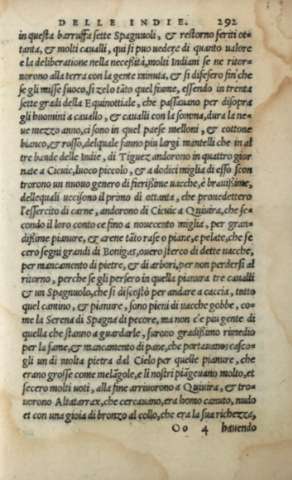 DELLE INDIE. 292
in questa baruffa sette Spagnuoli, & restorno feriti ot-
tanta, & molti caualli, qui si puo uedere di quanto ualore
e la deliberatione nella necessità, molti Indiani se ne ritor-
norono alla terra con la gente minuta, & si difesero fin che
se gli misse fuoco, si zelo tãto quel fiume, essendo in trenta
sette gradi della Equinottiale, che passauano per disopra
gli huomini a cauallo, & caualli con la somma, dura la ne-
ue mezzo anno, ci sono in quel paese melloni, & cottone
bianco, & rosso, del quale fanno piu larghi mantelli che in al
tre bande delle Indie, di Tiguez andorono in quattro gior
nate a Cicuic, luoco piccolo, & a dodici miglia di esso scon
trorono un nuouo genero di fierissime uacche, e brauissime,
delle quali uccisono il primo dì ottanta, che prouedettero
l'essercito di carne, anderono di Cicuic a Quiuira, che se-
condo il loro conto ce fino a nouecento miglia, per gran-
dissime pianure, & arene tãto rase o piane, e pelate, che se
cero segni grandi di Bonigas, ouero sterco di dette uacche,
per mancamento di pietre, & di arbori, per non perdersi al
ritorno, perche se gli persero in quella pianura tre caualli
& un Spagnuolo, che si discostò per andare a caccia, tutto
quel camino, & pianure, sono pieni di uacche gobbe, co-
me la Serena di Spagna di pecore, ma non c'e piu gente di
quella che stanno a guardarle, furono gradissimo rimedio
per la fame, & mancamento di pane, che portauano, casco-
gli un dì molta pietra dal Cielo per quelle pianure, che
erano grosse come melãgole, e li nostri piãgeuano molto, et
fecero molti uoti, alla fine arriuorono a Quiuira, & tro-
uorono Altatarrax, che cercauano, era homo canuto, nudo
et con una gioia di bronzo al collo, che era la sua richezza,
Oo 4 hauendo